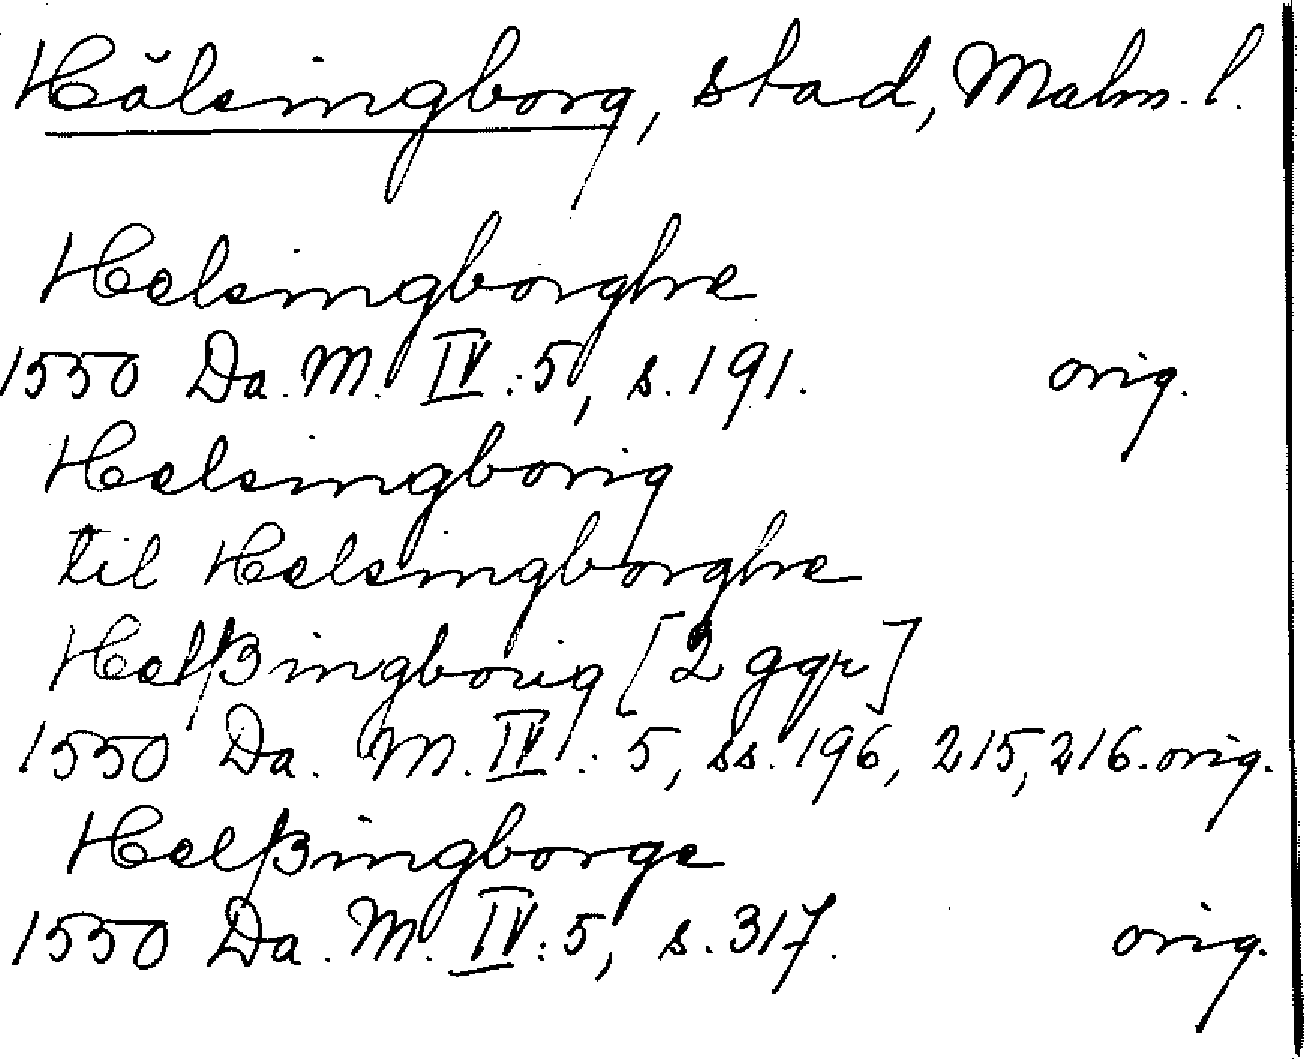 Hälsingborg, stad, Malm. l.
Helsingborghe
1550 Da. M. IV:5, s. 191. orig.
Helsingborig
til Helsingborghe
Helßingborig [2 ggr]
1550 Da. M. IV:5, ss. 196, 215, 216. orig.
Helßingborge
1550 Da. M. IV:5, s. 317. orig.